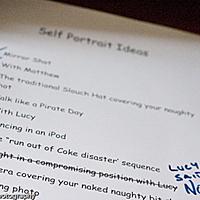 Self Portrait Ideas
Mirror Shot
With Matthew
The traditional Slouch Hat covering your naughty
Talk like a Pirate Day
With Lucy
ncing in an iPod
e "run out of Coke disaster' sequence
ght in a compromising position with Lucy
era covering your naked naughty bit
ng photo
LUCY
SAID
NO
otography